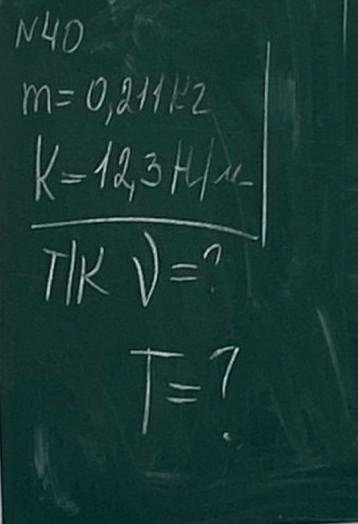 N40
m=0,211кг
K=12,3Н/м
T/K ν=?
T=?